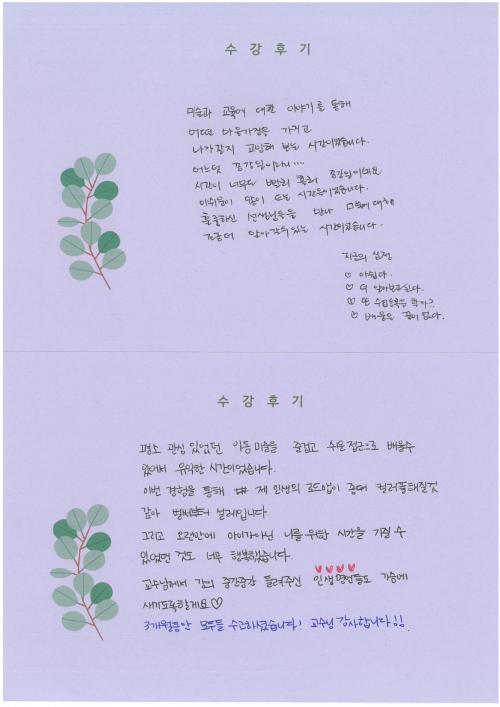 수강후기
미술과 교육에 대한 이야기를 통해
어떤 마음가짐을 가지고
나가갈지 고민해 보는 시간이었습니다.
어느덧 종강일이라니....
시간이 너무나 빨리 흘러 종강일이네요
아쉬움이 많이 드는 시간들이었습니다.
훌륭하신 선생님들을 만나 미술에 대해
조금더 알아갈수있는 시간이었습니다.
지금의 심정
♡ 아쉽다.
♡ 더 알아보고싶다.
♡ 또 수업등록을 할까?
♡ 배움은 끝이없다.
수강후기
평소 관심있었던 아동미술을 즐겁고 쉬운접근으로 배울수
있어서 유익한 시간이었습니다.
이번 경험을 통해 제 인생의 로드맵이 좀더 컬러풀해질것
같아 벌써부터 설레입니다.
그리고 오전만에 아이가아닌 나를위한 시간을 가질 수
있었던 것도 너무 행복했습니다.
교수님께서 강의 중간중간 들려주신 인생명언들도 가슴에
새기도록할게요♡
3개월동안 모두들 수고하셨습니다! 교수님 감사합니다!!